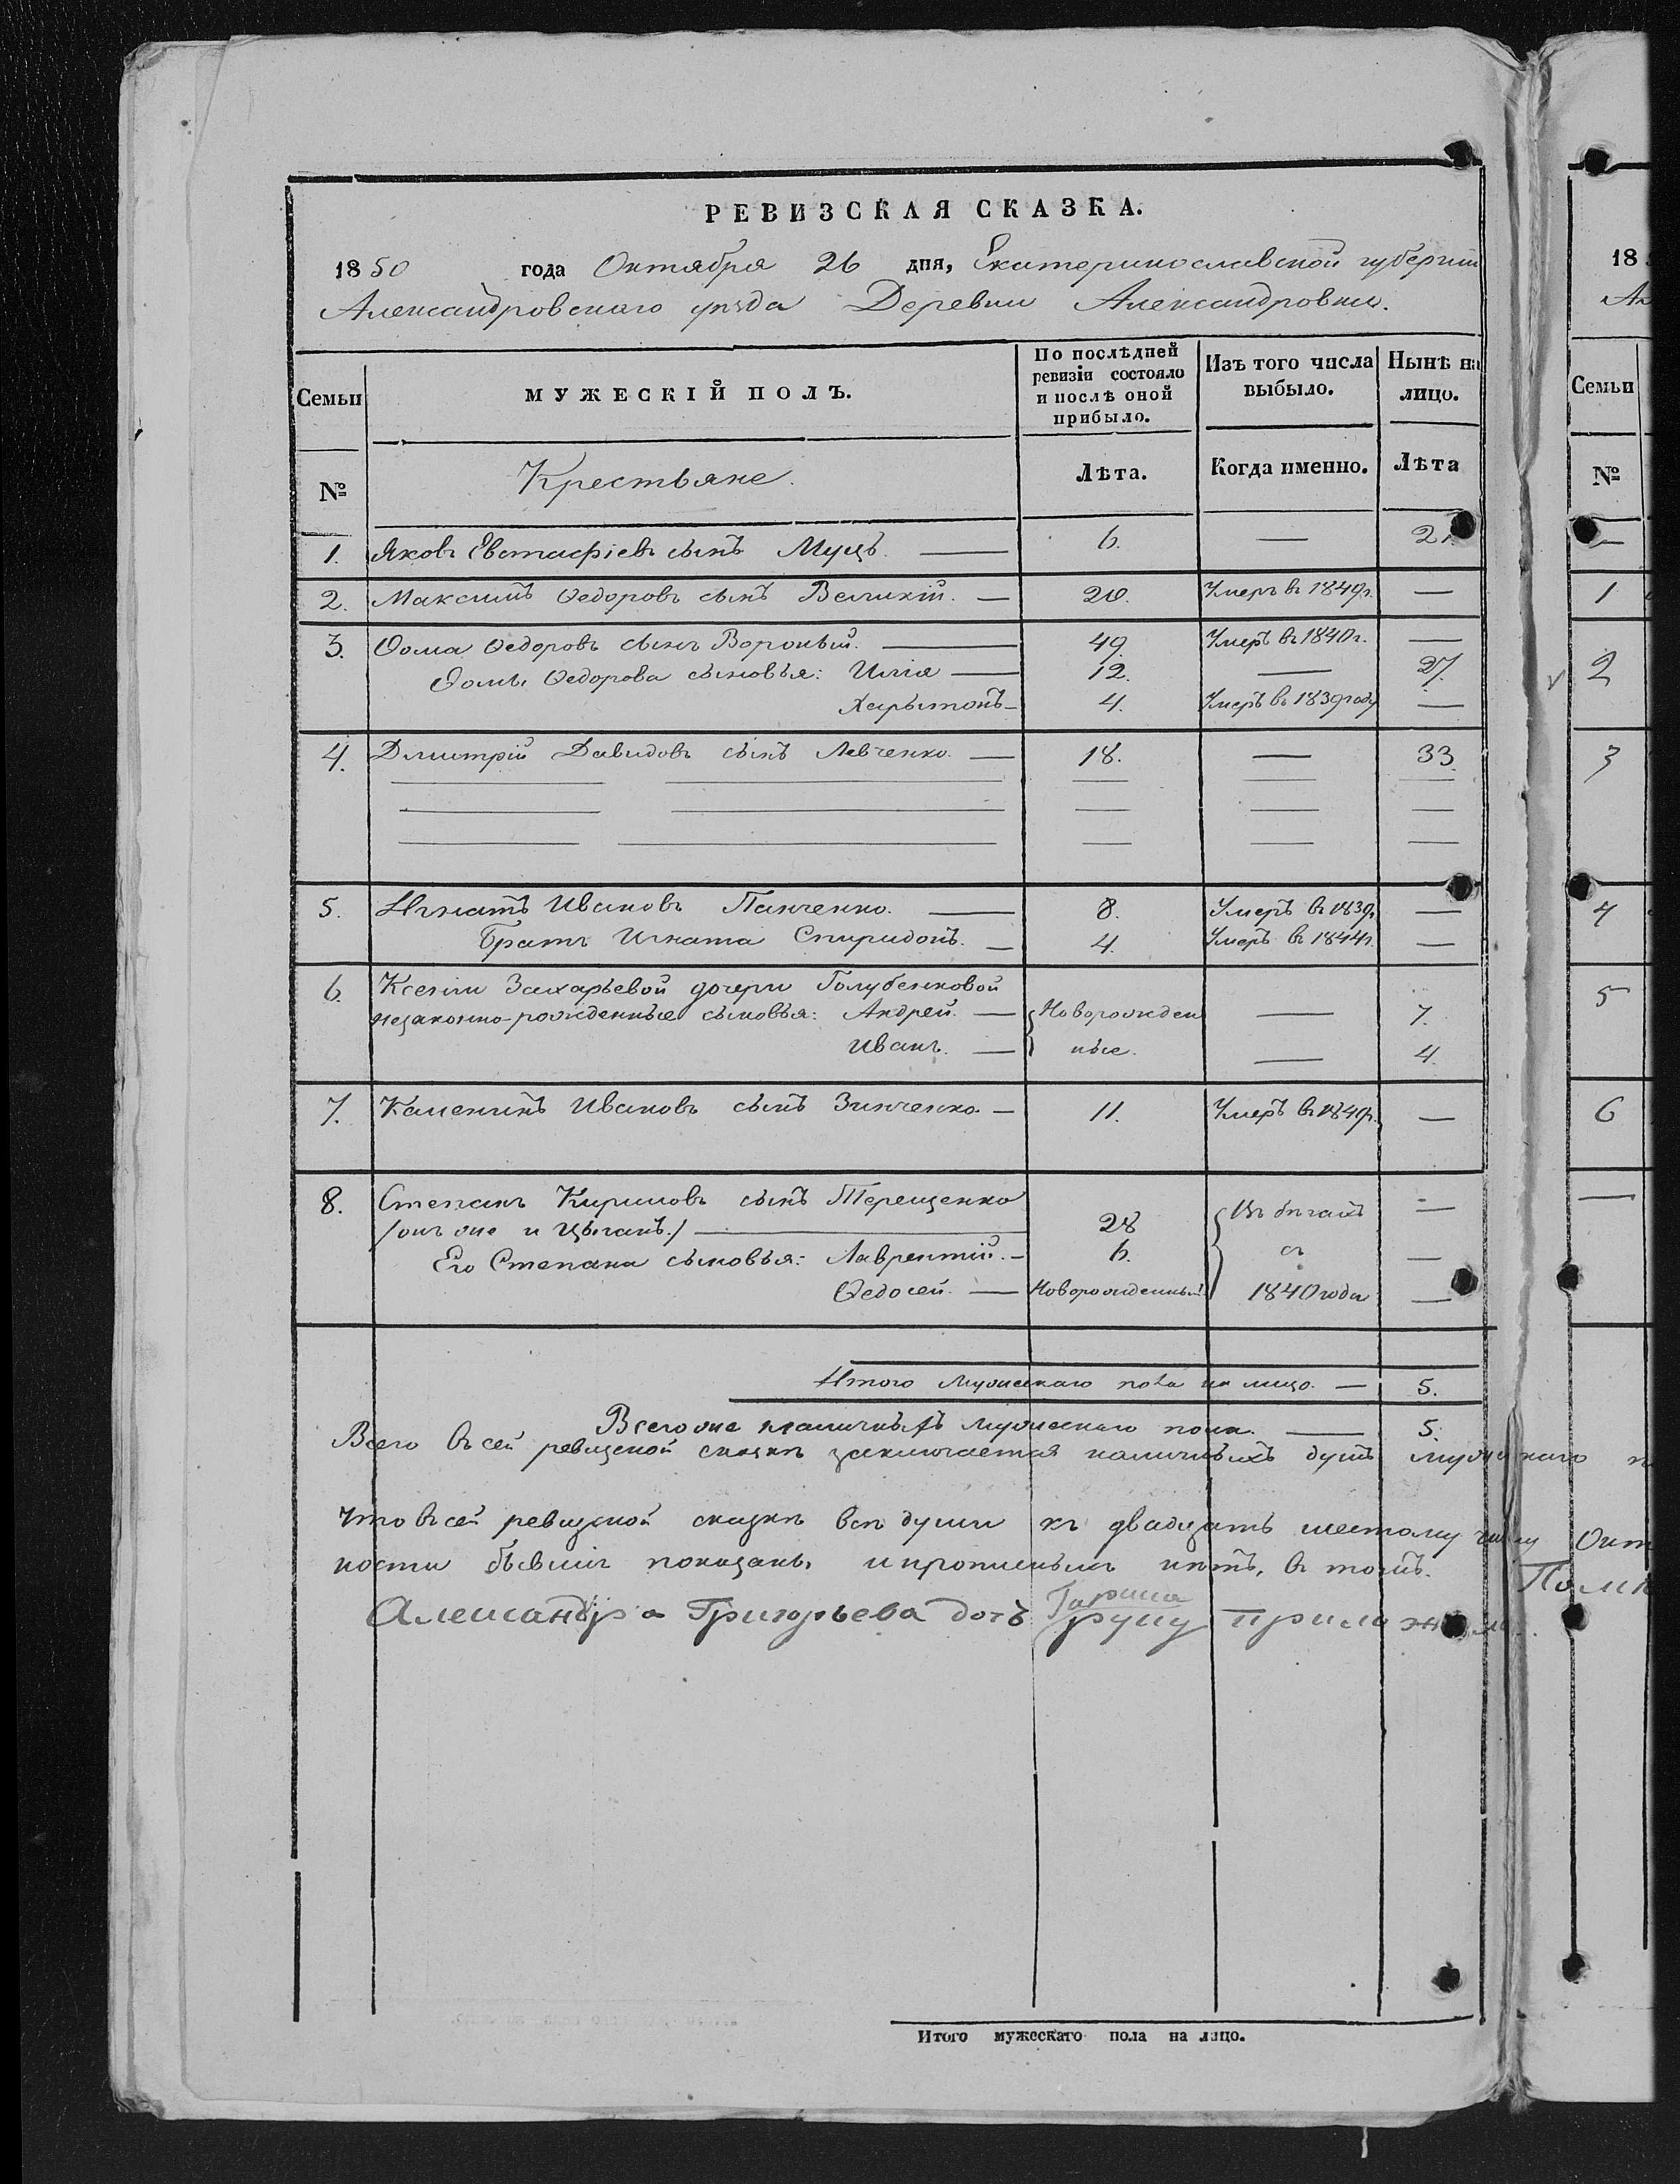 РЕВИЗСКАЯ СКАЗКА.
1850 года Октября 26 дня, Екатеринославской губернии
Александровскаго уѣзда Деревни Александровки.
Семьи
МУЖЕСКІЙ ПОЛЪ.
По послѣдней ревизіи состояло и послѣ оной прибыло.
Изъ того числа выбыло.
Нынѣ на лицо.
№ Крестьяне. Лѣта. Когда именно. Лѣта
1. Яковъ Евстафіевъ сынъ Муцъ. — 6. — 21
2. Максимъ Ѳедоровъ сынъ Великій. — 20. Умеръ въ 1849г. —
3. Ѳома Ѳедоровъ сынъ Вороный. — 49. Умеръ въ 1840г. —
Ѳомы Ѳедорова сыновья: Илія — 12. — 27.
Харытонъ — 4. Умеръ въ 1839году —
4. Дмитрій Давидовъ сынъ Левченко. — 18. — 33.
5. Игнатъ Ивановъ Панченко. — 8. Умеръ въ 1839г. —
Братъ Игната Спиридонъ. — 4. Умеръ въ 1844г. —
6. Ксеніи Захарьевой дочери Голубенковой
незаконно-рожденные сыновья: Андрей. — Новорожден — 7.
Иванъ. — ные. — 4.
7. Каленикъ Ивановъ сынъ Зинченко. — 11. Умеръ въ 1849г. —
8. Степанъ Кириловъ сынъ Терещенко
/онъ же и Цыганъ./ — 28 Въ бѣгахъ —
Его Степана сыновья: Лаврентій. — 6. съ —
Ѳедосей. — Новорожденный 1840 года —
Итого мужескаго пола на лицо. — 5.
Всего же наличныхъ мужескаго пола. — 5.
Всего въ сей ревизской сказкѣ заключается наличныхъ душъ мужескаго
Что въ сей ревизской сказкѣ всѣ души къ двадцать шестому числу Окт
ности бывшія показаны и прописныхъ нѣтъ, въ томъ.
Помѣ
Александра Григорьева дочъ
руку приложила
Итого мужескаго пола на лицо.
18
Ал
Семьи
№
—
1
2
3
4
5
6
—